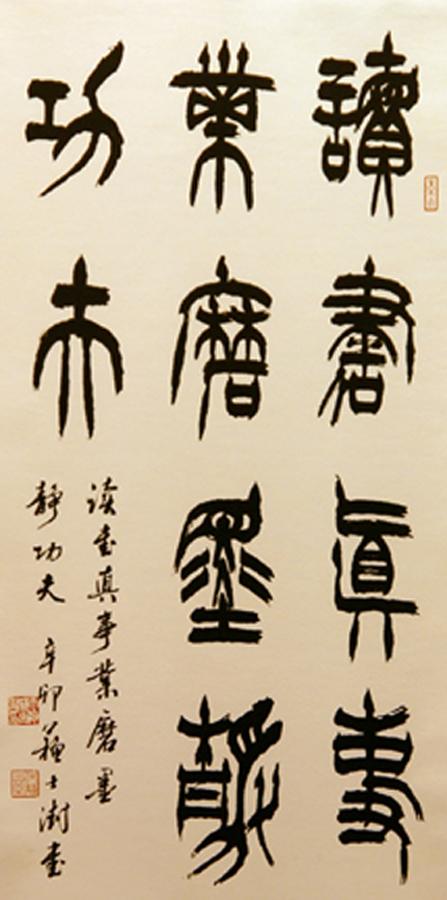 讀書真事
業磨墨靜
功夫
读书真事业磨墨
静功夫 辛卯 苏士澍书